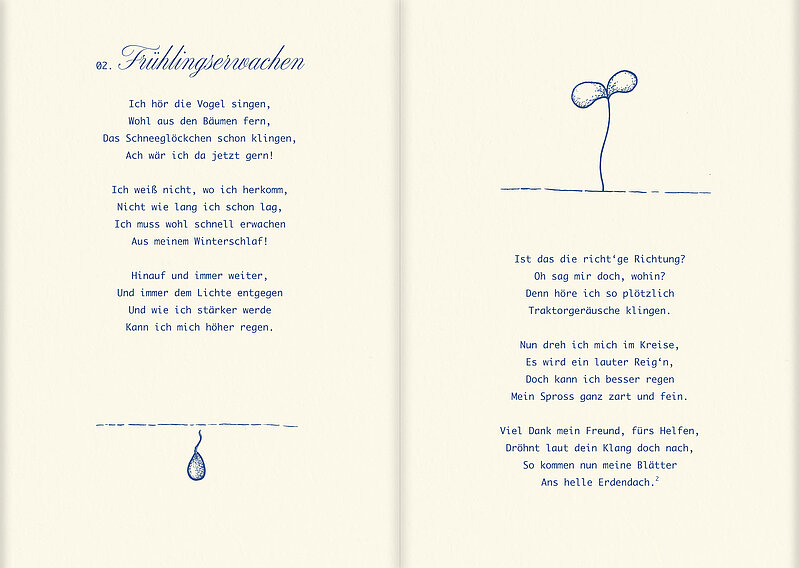 02. Frühlingserwachen
Ich hör die Vogel singen,
Wohl aus den Bäumen fern,
Das Schneeglöckchen schon klingen,
Ach wär ich da jetzt gern!
Ich weiß nicht, wo ich herkomm,
Nicht wie lang ich schon lag,
Ich muss wohl schnell erwachen
Aus meinem Winterschlaf!
Hinauf und immer weiter,
Und immer dem Lichte entgegen
Und wie ich stärker werde
Kann ich mich höher regen.
Ist das die richt‘ge Richtung?
Oh sag mir doch, wohin?
Denn höre ich so plötzlich
Traktorgeräusche klingen.
Nun dreh ich mich im Kreise,
Es wird ein lauter Reig‘n,
Doch kann ich besser regen
Mein Spross ganz zart und fein.
Viel Dank mein Freund, fürs Helfen,
Dröhnt laut dein Klang doch nach,
So kommen nun meine Blätter
Ans helle Erdendach.²